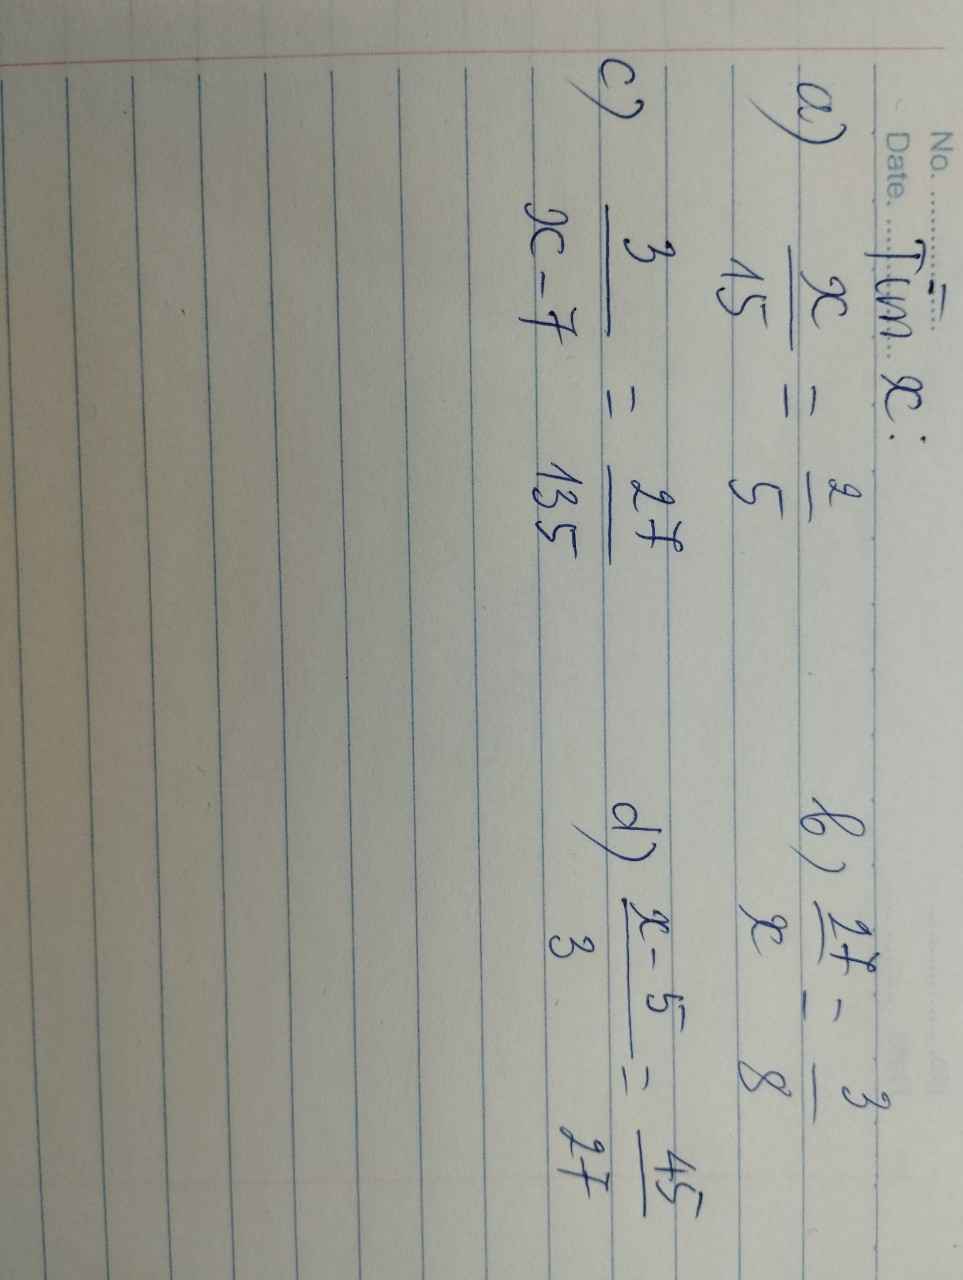 No. ............
Date. ............
Tìm x:
a) x/15 = 2/5 b) 27/x = 3/8
c) 3/(x-7) = 27/135 d) (x-5)/3 = 45/27